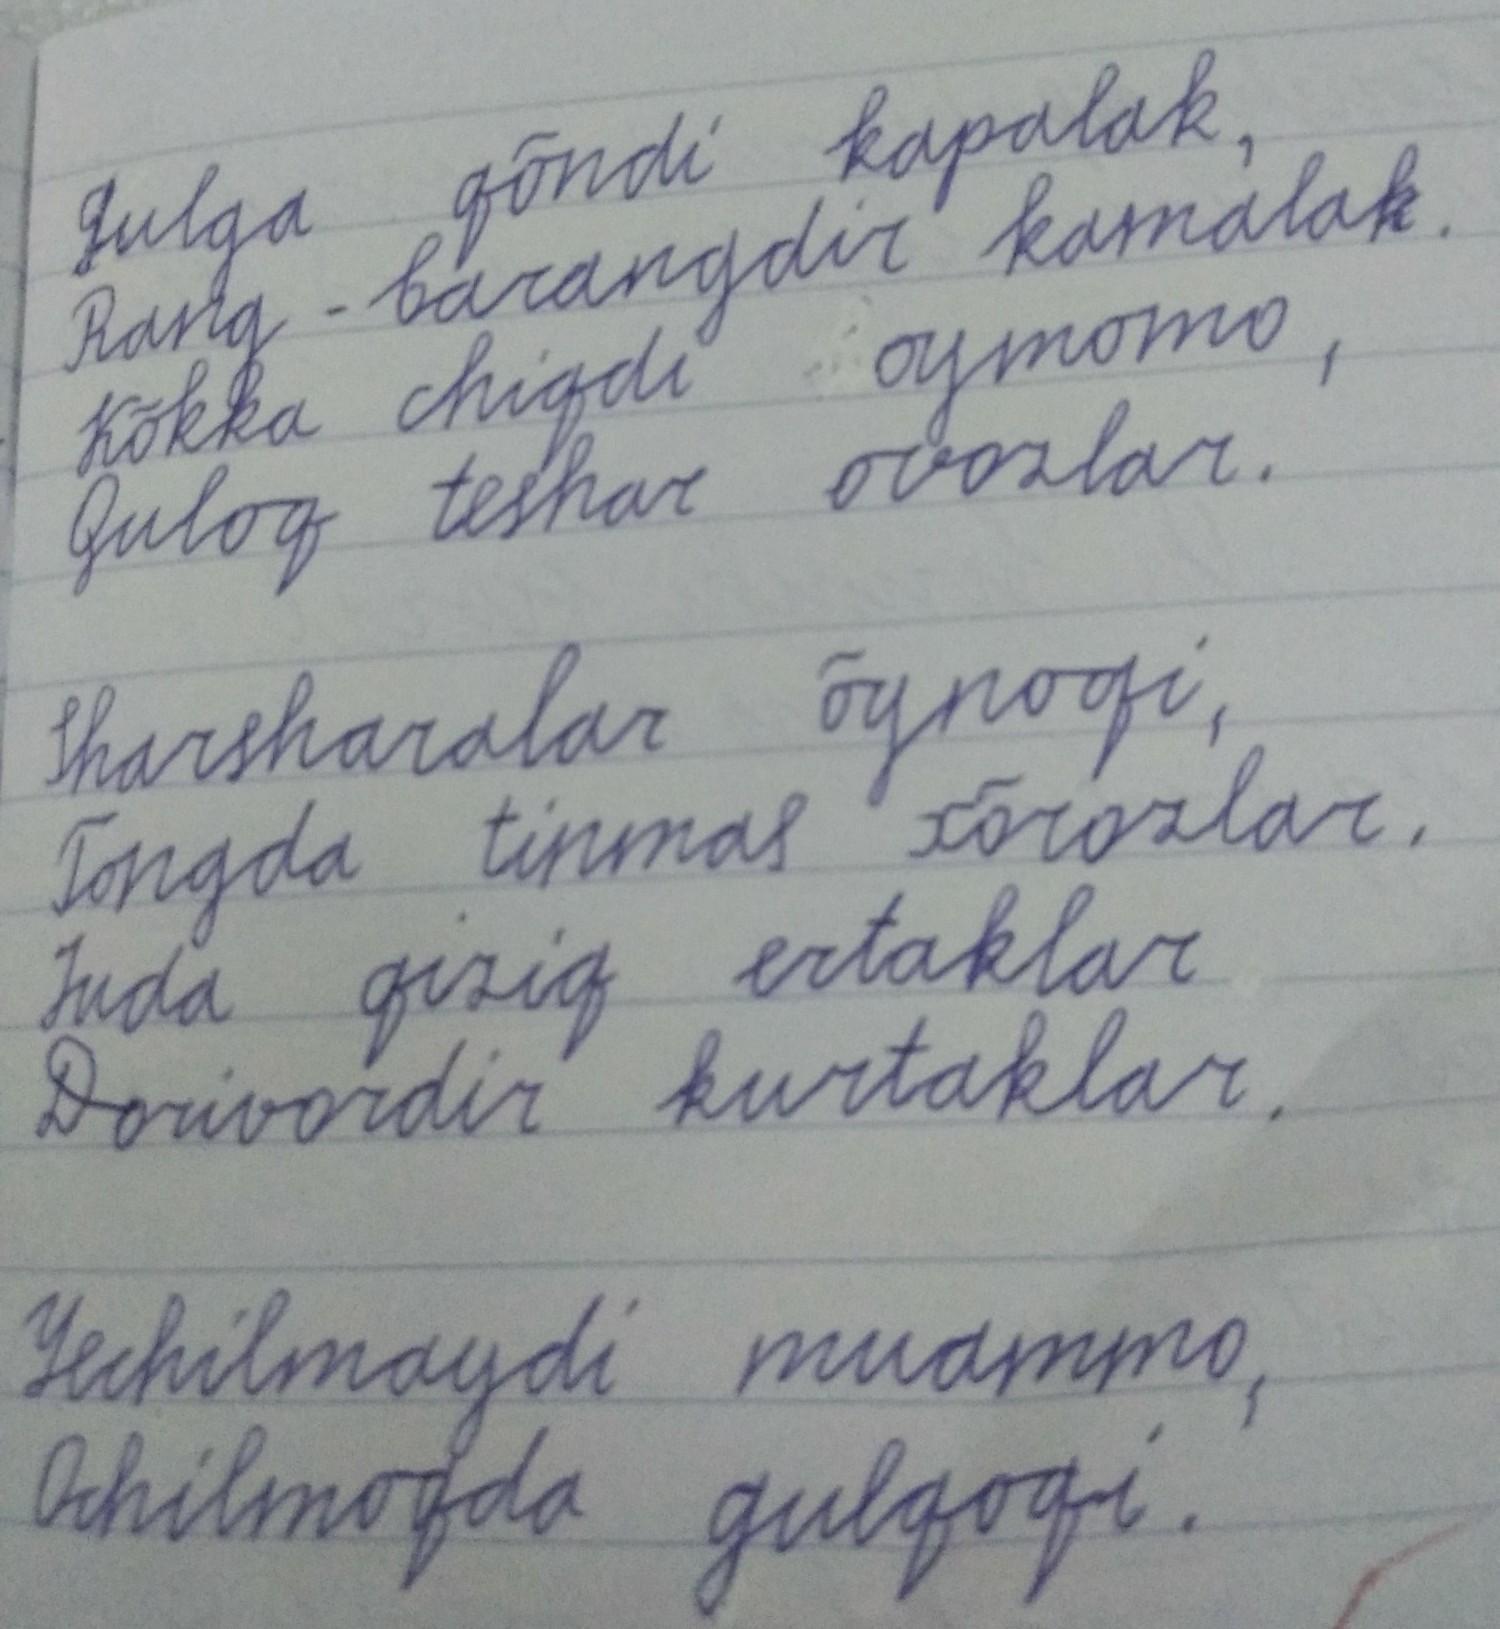 Gulga qōndi kapalak,
Rang-barangdir kamalak.
Kōkka chiqdi oymomo,
Quloq teshar ovozlar.
Sharsharalar ōynoqi,
Tongda tinmas xōrozlar.
Juda qiziq ertaklar
Dorivordir kurtaklar.
Yechilmaydi muammo,
Ochilmoqda gulqoqi.